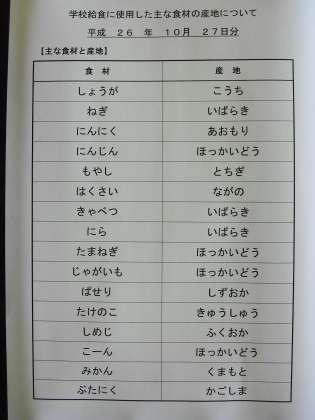 学校給食に使用した主な食材の産地について
平成 26 年 10月 27日分
【主な食材と産地】
食 材 産 地
しょうが こうち
ねぎ いばらき
にんにく あおもり
にんじん ほっかいどう
もやし とちぎ
はくさい ながの
きゃべつ いばらき
にら いばらき
たまねぎ ほっかいどう
じゃがいも ほっかいどう
ぱせり しずおか
たけのこ きゅうしゅう
しめじ ふくおか
こーん ほっかいどう
みかん くまもと
ぶたにく かごしま